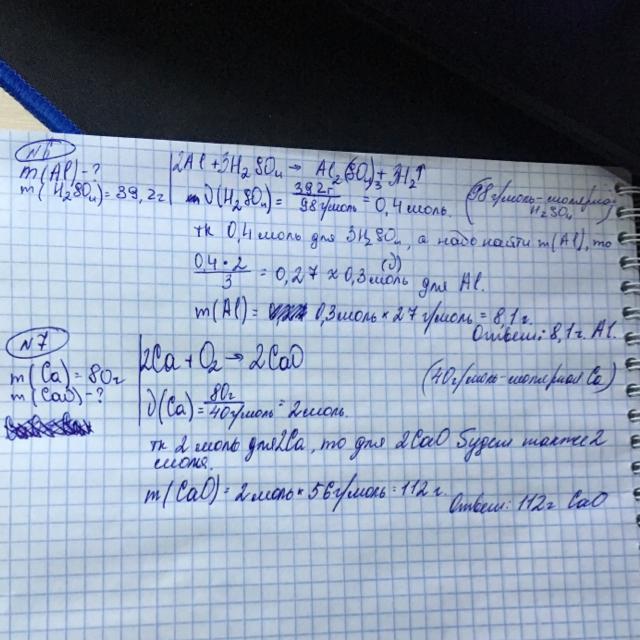 №6
m(Al)-?
m(H₂SO₄)=39,2г
2Al+3H₂SO₄ → Al₂(SO₄)₃+3H₂↑
ν(H₂SO₄)= 39,2г / 98г/моль = 0,4 моль. (98г/моль-молярная H₂SO₄)
тк 0,4 моль для 3H₂SO₄, а надо найти m(Al), то
0,4·2 / 3 = 0,27 ≈ 0,3моль (ν) для Al.
m(Al)= 0,3моль × 27г/моль = 8,1г.
Ответ: 8,1г. Al.
№7
m(Ca)=80г
m(CaO)-?
2Ca+O₂→2CaO
(40г/моль-молярная Ca)
ν(Ca)= 80г / 40г/моль = 2моль.
тк 2 моль для 2Ca, то для 2CaO будет также 2
моля.
m(CaO)=2моль×56г/моль=112г.
Ответ: 112г CaO